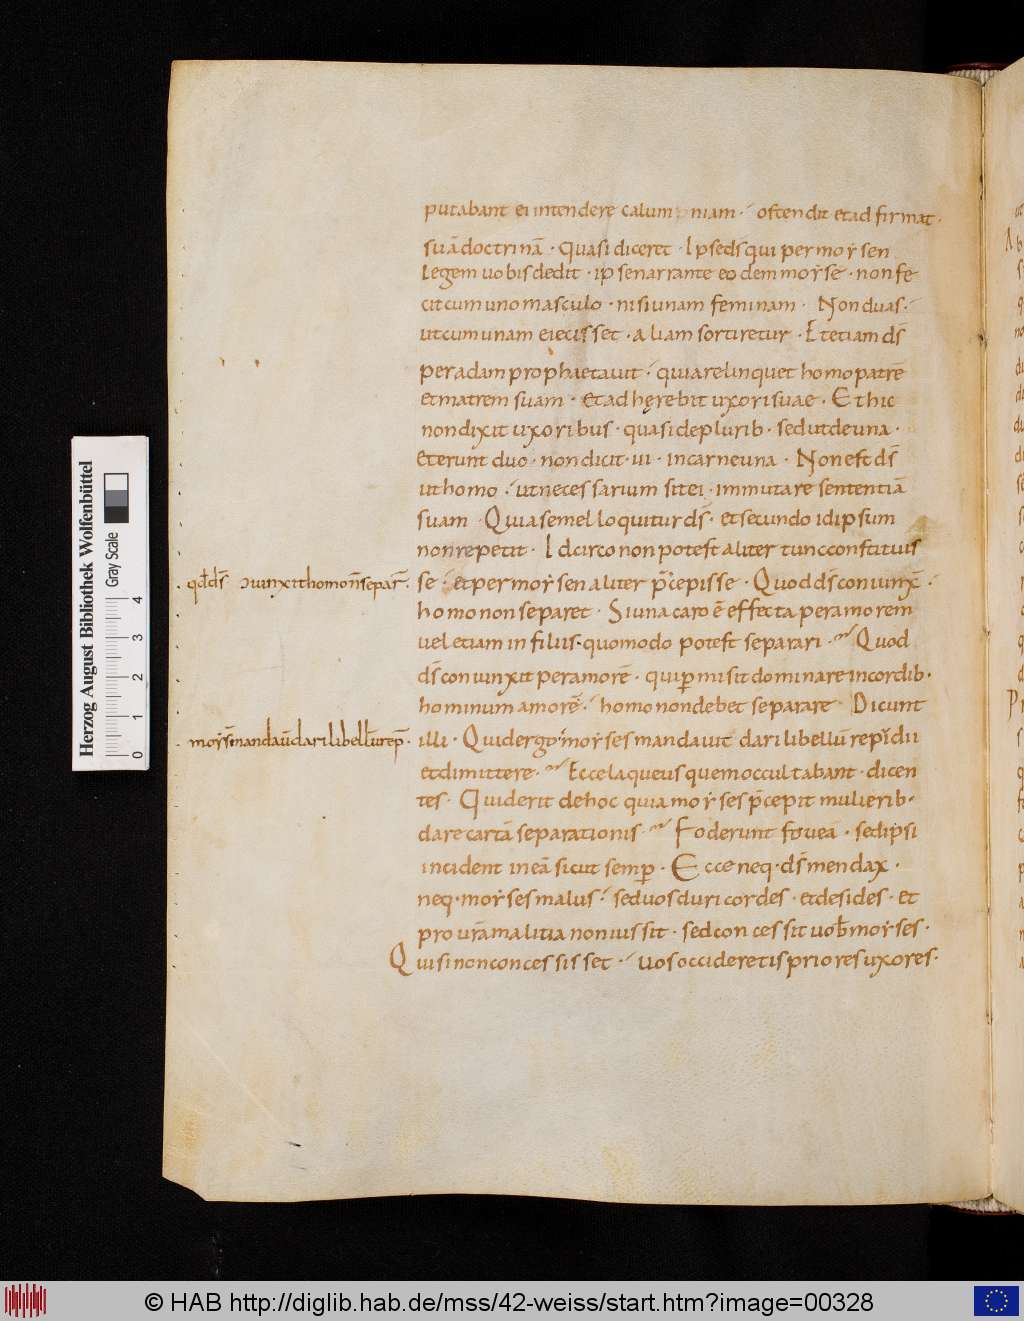 putabant ei intendere calumniam · ostendit et ad firmat ·
suā doctrinā · quasi diceret · Ipse ds̄ qui per moẏsen
legem vobis dedit · ipse narrante eodem moẏse · non fe
cit cum uno masculo · nisi unam feminam · Non duas ·
ut cum unam eiecisset · aliam sortiretur · Et etiam ds̄
per adam prophaetauit · quia relinquet homo patrē
et matrem suam · Et ad hęrebit uxori suae · Et hic
non dixit uxoribus · quasi de plurib · sed ut de una ·
Et erunt duo · non dicit · ui · in carne una · Non est ds̄
ut homo · ut necessarium sit ei · immutare sententiā
suam · Quia semel loquitur ds̄ · et secundo id ipsum
non repetit · Idcirco non potest aliter tunc constituis
qd̄ ds̄ ɔiunxit homo n̄ separ̄ ·
se · et per moẏsen aliter p̄cepisse · Quod ds̄ coniunx̄ ·
homo non separet · Si una caro ē effecta per amorem
uel etiam in filiis · quomodo potest separari · Quod
ds̄ coniunxit per amorē · qui p̄misit dominare in cordib ·
hominum amorē · homo non debet separare · Dicunt
moẏs̄ mandau̅ dari libell̄u rep̄ ·
illi · Quid ergo moẏses mandauit dari libellū repudii
et dimittere · Ecce laqueus quem occultabant · dicen
tes · Quid erit de hoc quia moẏses p̄cepit mulierib ·
dare cartā separationis · Foderunt foueā · sed ipsi
incident in eā sicut semp̄ · Ecce neq · ds̄ mendax ·
neq · moẏses malus · sed uos duri cordes · et desides · et
pro ur̄a malitia non iussit · sed concessit uob̄ moẏses ·
Qui si non concessisset · uos occideretis priores uxores ·
Herzog August Bibliothek Wolfenbüttel
Gray Scale
0 1 2 3 4
© HAB http://diglib.hab.de/mss/42-weiss/start.htm?image=00328